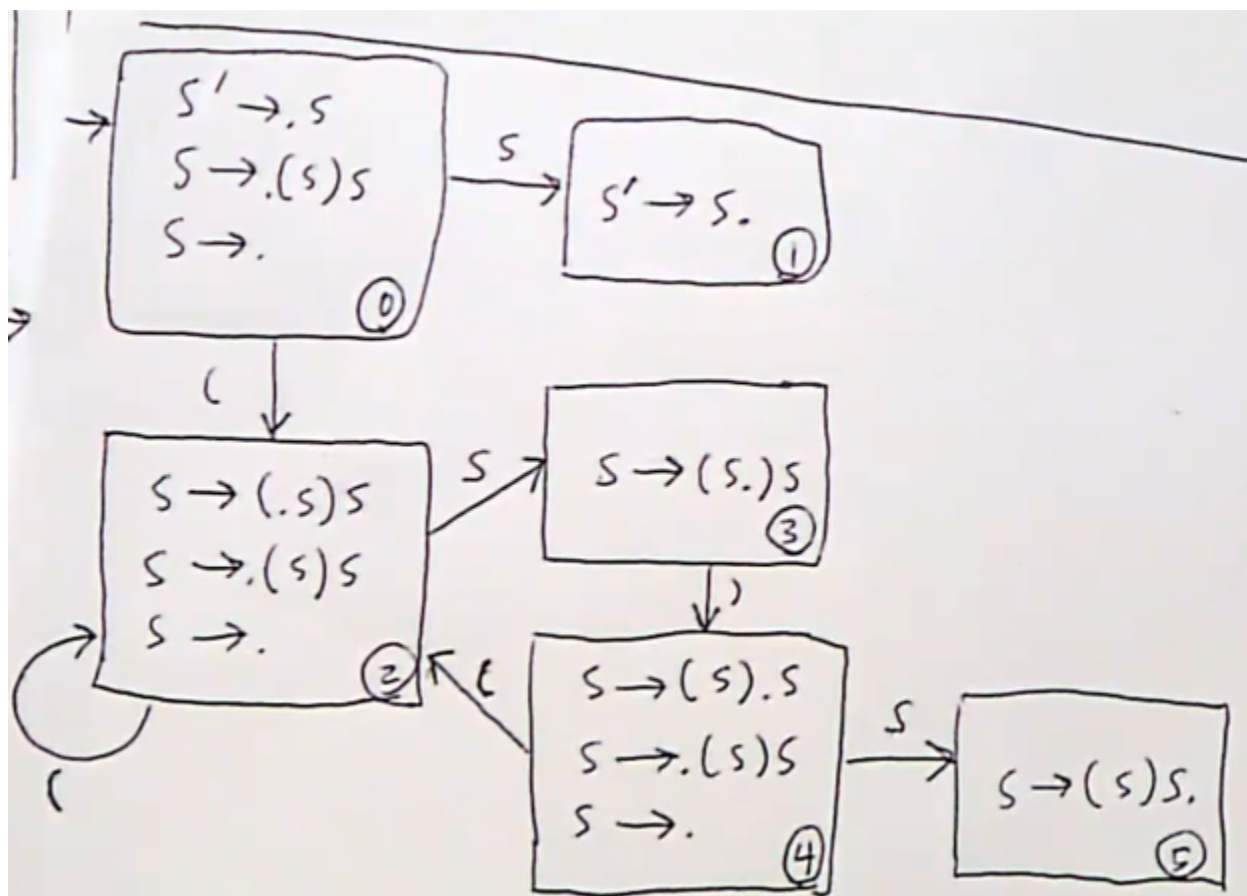 S' → . S
S → .(S)S
S → .
0
S
S' → S.
1
(
S → (.S)S
S → .(S)S
S → .
2
S
S → (S.)S
3
)
(
S → (S).S
S → .(S)S
S → .
4
S
S → (S)S.
5
(